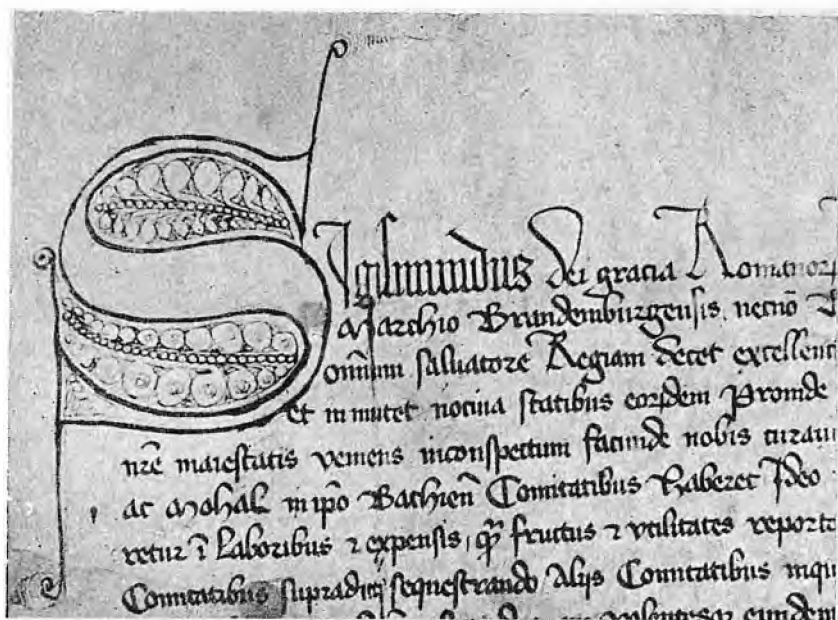 Sigismundus dei gracia Romanor
Marchio Brandemburgensis, necnō
omnium saluatore Regiam decet excellent
et in mutet nociua statibus eorsdem Proinde
nr̄e maiestatis veniens inconspectum facunde nobis curaui
ac Mohal in ip̄o Bachien̄ Comitatibus Haberet Ideo
retur ī Laboribus ⁊ expensis, qȝ fructus ⁊ vtilitates reporta
Comitatibus supradictis sequestrando Alijs Comitatibus inqu
eundem